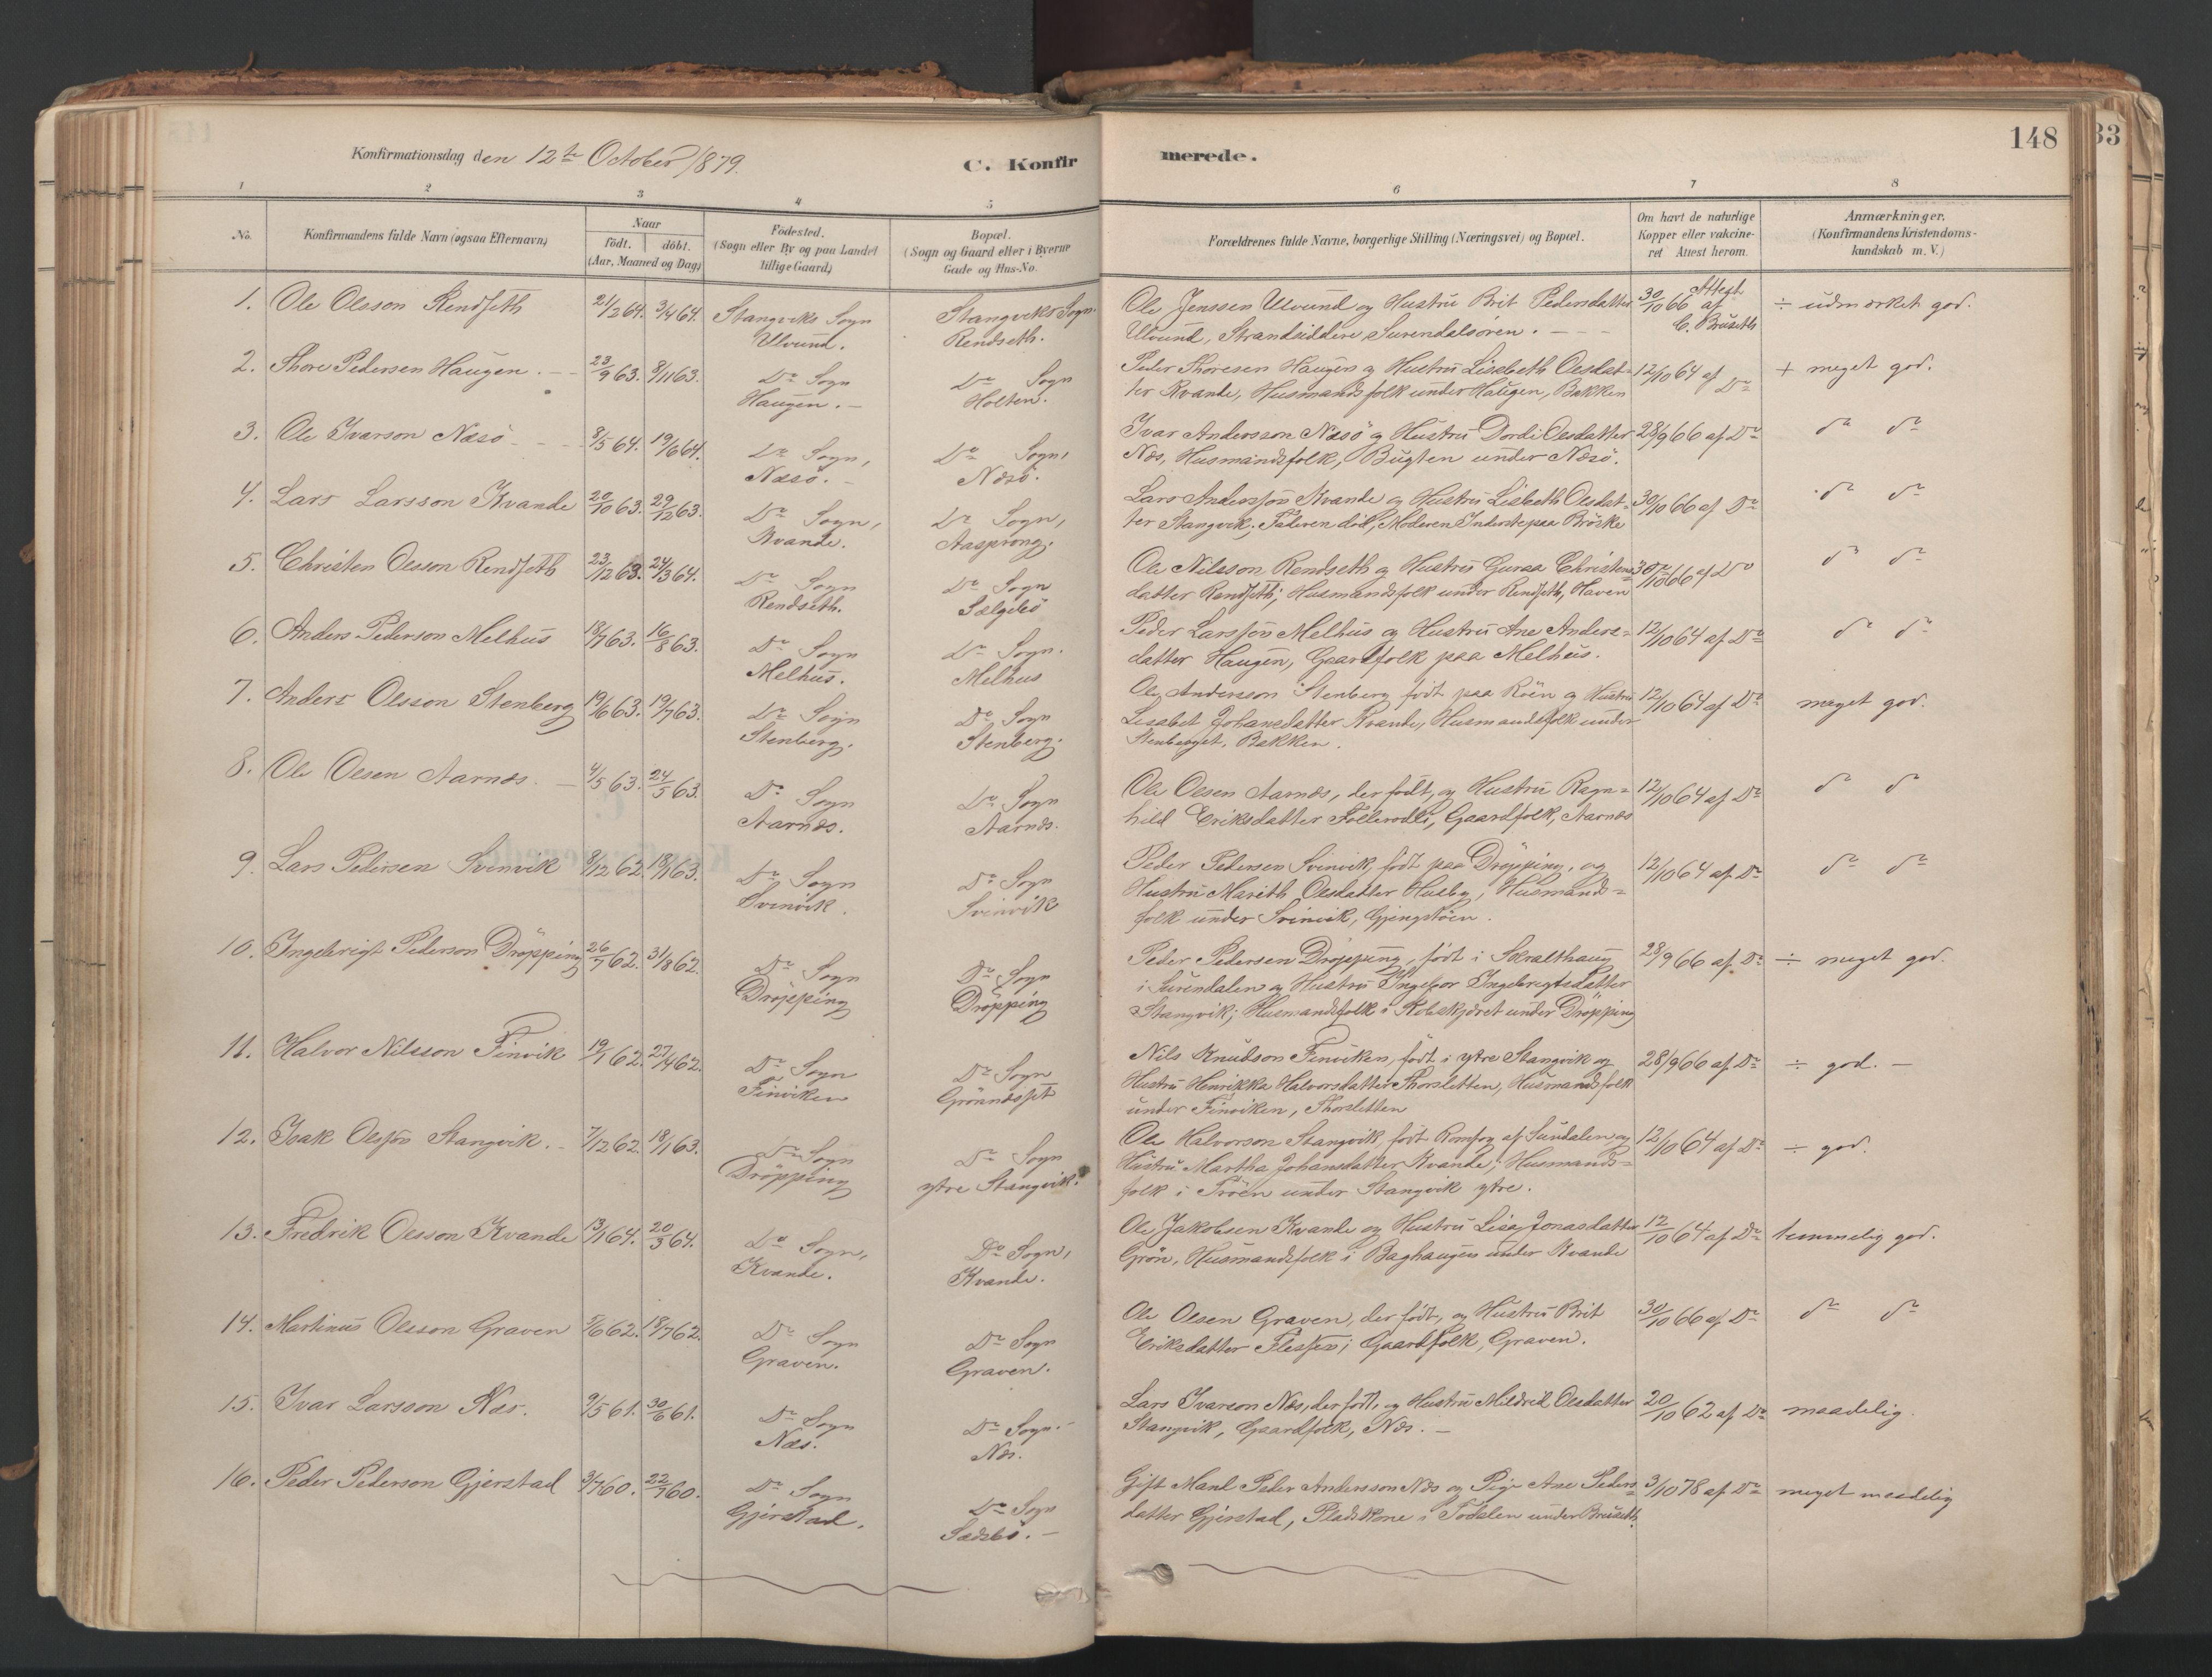 148
33
Konfirmationsdag den 12te October 1879.
C. Konfirmerede.
1 2 3 4 5 6 7 8
No.
Konfirmandens fulde Navn (ogsaa Efternavn)
Naar
födt. döbt.
(Aar, Maaned og Dag)
Födested.
(Sogn eller By og paa Landet
tillige Gaard)
Bopæl.
(Sogn og Gaard eller i Byerne
Gade og Hus-No.
Forældrenes fulde Navne, borgerlige Stilling (Næringsvei) og Bopæl.
Om havt de naturlige
Kopper eller vakcine-
ret Attest herom.
Anmærkninger.
(Konfirmandens Kristendoms-
kundskab m. V.)
1. Ole Olsson Rendseth 21/2 64. 3/4 64. Stangviks Sogn Stangviks Sogn
Ulvund. Rendseth.
Ole Jenssen Ulvund og Hustru Brit Pedersdatter 30/10 66 Attest af ÷ udmærket god.
Ulvund, Strandsiddere Surendalsören. C. Bruseth
2. Thore Pedersen Haugen. 23/9 63. 8/11 63. Do Sogn Do Sogn
Haugen. Holten.
Peder Thoresen Haugen og Hustru Lisebeth Olsdat- 12/10 64 af Do + meget god.
ter Kvande, Husmandsfolk under Haugen, Bakken
3. Ole Ivarson Næsö 8/5 64. 19/6 64. Do Sogn, Do Sogn,
Næsö. Næsö.
Ivar Andersson Næsö og Hustru Dordi Olsdatter 28/9 66 af Do do do
Næs, Husmandsfolk, Bugten under Næsö.
4. Lars Larsson Kvande 20/10 63. 29/12 63. Do Sogn, Do Sogn,
Kvande. Aasprong.
Lars Andersson Kvande og Hustru Lisbeth Olsdat- 30/10 66 af Do do do
ter Stangvik; Faderen död, Moderen Inderste paa Bröske
5. Christen Olsson Rendseth 23/12 63. 24/3 64. Do Sogn Do Sogn
Rendseth. Sælgebö
Ole Nilsson Rendseth og Hustru Guraa Christens= 30/10 66 af Do do do
datter Rendseth; Husmandsfolk under Rendseth, Haven
6. Anders Pederson Melhus 18/7 63. 16/8 63. Do Sogn Do Sogn.
Melhus. Melhus
Peder Larsson Melhus og Hustru Ane Anders= 12/10 64 af Do do do
datter Haugen, Gaardfolk paa Melhus.
7. Anders Olsson Stenberg 19/6 63. 19/7 63. Do Sogn Do Sogn
Stenberg. Stenberg.
Ole Andersson Stenberg födt paa Röen og Hustru 12/10 64 af Do meget god.
Lisabet Johansdatter Kvande, Husmandsfolk under
Stenberget, Bakken.
8. Ole Olsen Aarnæs. 4/5 63. 24/5 63. Do Sogn Do Sogn
Aarnæs. Aarnæs.
Ole Olsen Aarnæs, der födt, og Hustru Ragn= 12/10 64 af Do do do
hild Eriksdatter , Gaardfolk, Aarnæs
9. Lars Pedersen Svinvik 8/12 62. 18/1 63. Do Sogn Do Sogn
Svinvik. Svinvik
Peder Pedersen Svinvik, födt paa Dröpping, og 12/10 64 af Do do do
Hustru Marith Olsdatter Husby, Husmands=
folk under Svinvik, Gjengstöen.
10. Ingebrigt Pederson Dröpping 26/7 62. 31/8 62. Do Sogn Do Sogn
Dröpping Dröpping
Peder Pedersen Dröpping, födt i Skralthaug 28/9 66 af Do ÷ meget god.
i Surendalen og Hustru Ingebor Ingebrigtsdatter
Stangvik; Husmandsfolk i Kobskjæret under Dröpping
11. Halvor Nilsson Finvik 19/1 62. 27/4 62. Do Sogn Do Sogn
Finviken Grönnæsset
Nils Knudson Finviken, födt i ytre Stangvik og 28/9 66 af Do ÷ god.
Hustru Henrikka Halvorsdatter Thorsletten, Husmandsfolk
under Finviken, Thorsletten
12. Isak Olsson Stangvik. 7/12 62. 18/1 63. Do Sogn Do Sogn
Dröpping ytre Stangvik.
Ole Halvorson Stangvik, födt Romfog af Sundalen og 12/10 64 af Do ÷ god.
Hustru Martha Johansdatter Kvande; Husmands=
folk i Tröen under Stangvik ytre.
13. Fredrik Olsson Kvande 13/1 64. 20/3 64. Do Sogn, Do Sogn,
Kvande. Kvande.
Ole Jakobsen Kvande og Hustru Lisa Jonasdatter 12/10 64 af Do temmelig god.
Grön, Husmandsfolk i Baghaugen under Kvande
14. Martinus Olsson Graven 5/6 62. 18/7 62. Do Sogn Do Sogn
Graven. Graven.
Ole Olsen Graven, der födt, og Hustru Brit 30/10 66 af Do do do
Eriksdatter ; Gaardfolk, Graven.
15. Ivar Larsson Næs. 9/5 61. 30/6 61. Do Sogn Do Sogn.
Næs. Næs.
Lars Ivarson Næs, der födt, og Hustru Mildrid Olsdatter 20/10 62 af Do maadelig.
Stangvik, Gaardfolk, Næs.
16. Peder Pederson Gjerstad 3/7 60. 22/7 60. Do Sogn Do Sogn
Gjerstad. Sæsbö.
Gift Mand Peder Andersson Næs og Pige Ane Peders= 3/10 78 af Do meget maadelig
datter Gjerstad, Pladskone i Todalen under Bruseth.